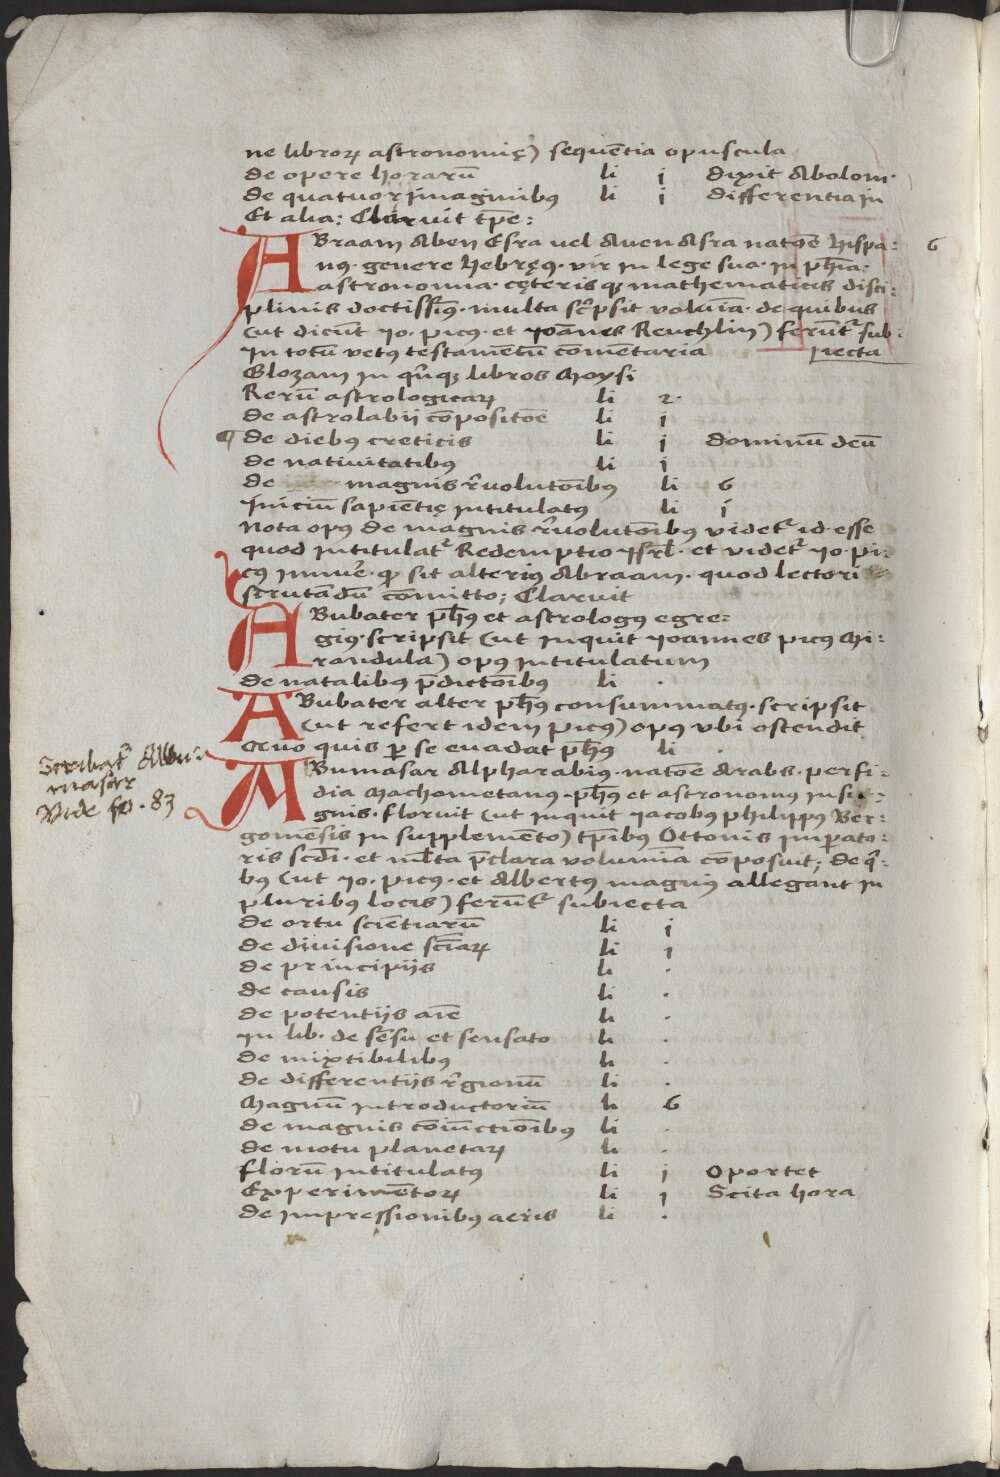 ne libroꝝ astronomię) sequētia opuscula
de opere horarū li j dixit Abolom·
de quatuor imaginibus li j differentia in
Et alia: Claruit tp̄e:
ABraam Aben Esra vel Aven Asra natōe hispa: 6
nꝰ· genere hebręꝰ· vir in lege sua· in ph̄ia:
astronomia· cęterisqꝫ mathematicis disci:
plinis doctissīꝰ· multa sc̓psit volūīa· de quibus
(ut dicūt Io. picꝰ· et Ioānes Reuchlin) ferūt᷑ sub:
In totū vetꝰ testamētū comētaria iecta
Glozam in qn̄qꝫ libros Moysi
Rerū astrologicaꝝ li 2·
de astrolabij cōpositōe li j
¶ de diebꝰ creticis li j dominū deū
de nativitatibꝰ li j
de magnis r̓volutōibꝰ li 6
Iniciū sapientię intitulatꝰ li j
Nota opꝰ de magnis r̓volutōibꝰ videt᷑ id esse
quod intitulat᷑ Redemptio Isrl̄· et videt᷑ Io· pi:
cꝰ innuē· ꝙ sit alteriꝰ Abraam· quod lectori
scrutādū cōmitto; Claruit
ABubater ph̄ꝰ et astrologꝰ egre:
giꝰ· scripsit (ut inquit Ioannes picꝰ Mi:
randula) opꝰ intitulatum
de natalibꝰ p̄dictōibꝰ li ·
ABubater alter ph̄ꝰ consummatꝰ· scripsit
(ut refert idem picꝰ) opꝰ vbi ostendit
Quo quis ꝑ se evadat ph̄ꝰ li ·
Scribat᷑ Albu:
masar
Vide fo· 83
ABumasar Alpharabiꝰ· natōe Arabs· perfi:
dia Machometanꝰ· ph̄ꝰ et astronomus insi:
gnis· floruit (ut inquit Iacobus philippꝰ Ber:
gomēsis in supplemēto) tp̄ibꝰ Ottonis imꝑato:
ris scdī· et ml̄ta p̄clara volumīa cōposuit; de q̓:
bꝰ (ut Io. picꝰ· et Albertꝰ magnꝰ allegant in
pluribꝰ locis) ferūt᷑ subiecta
de ortu scientiarū li j
de divisione sciāꝝ li j
de principijs li ·
de causis li ·
de potentijs aīe li ·
In lib· de sēsu et sensato li ·
de mixtibilibꝰ li ·
de differentijs r̓gionū li ·
Magnū introductoriū li 6
de magnis cōiūctiōibꝰ li ·
de motu planetaꝝ li ·
florū intitulatꝰ li j Oportet
Experimētoꝝ li j Scita hora
de impressionibꝰ aeris li ·